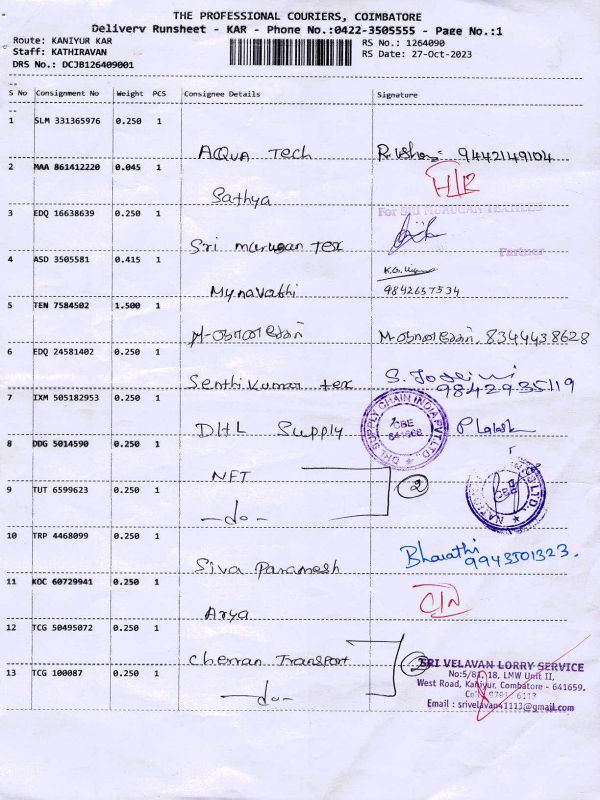 THE PROFESSIONAL COURIERS, COIMBATORE
Delivery Runsheet - KAR - Phone No.:0422-3505555 - Page No.:1
Route: KANIYUR KAR
RS No.: 1264090
Staff: KATHIRAVAN
RS Date: 27-Oct-2023
DRS No.: DCJB126409001
S No Consignment No Weight PCS Consignee Details Signature
1 SLM 331365976 0.250 1
AQUA Tech 9442149104
2 MAA 861412220 0.045 1
Sathya
3 EDQ 16638639 0.250 1
For SRI MURUGAN TEXTILES
Sri murugan tex
Partner
4 ASD 3505581 0.415 1
Mynavathi 9842657534
5 TEN 7584502 1.500 1
8344438628
6 EDQ 24581402 0.250 1
Senthilkumar tex 9842935119
7 IXM 505182953 0.250 1
DHL Supply
DHL SUPPLY CHAIN INDIA PVT. LTD.
CBE
8 DDG 5014590 0.250 1
NFT 2
9 TUT 6599623 0.250 1
-do-
10 TRP 4468099 0.250 1
Siva Paramesh Bharathi
11 KOC 60729941 0.250 1
Arya
12 TCG 50495072 0.250 1
Cherran Transport 2
SRI VELAVAN LORRY SERVICE
13 TCG 100087 0.250 1
LMW Unit II,
West Road, Kaniyur, Combatore - 641659.
-do-
Email : srivelavan41113@gmail.com